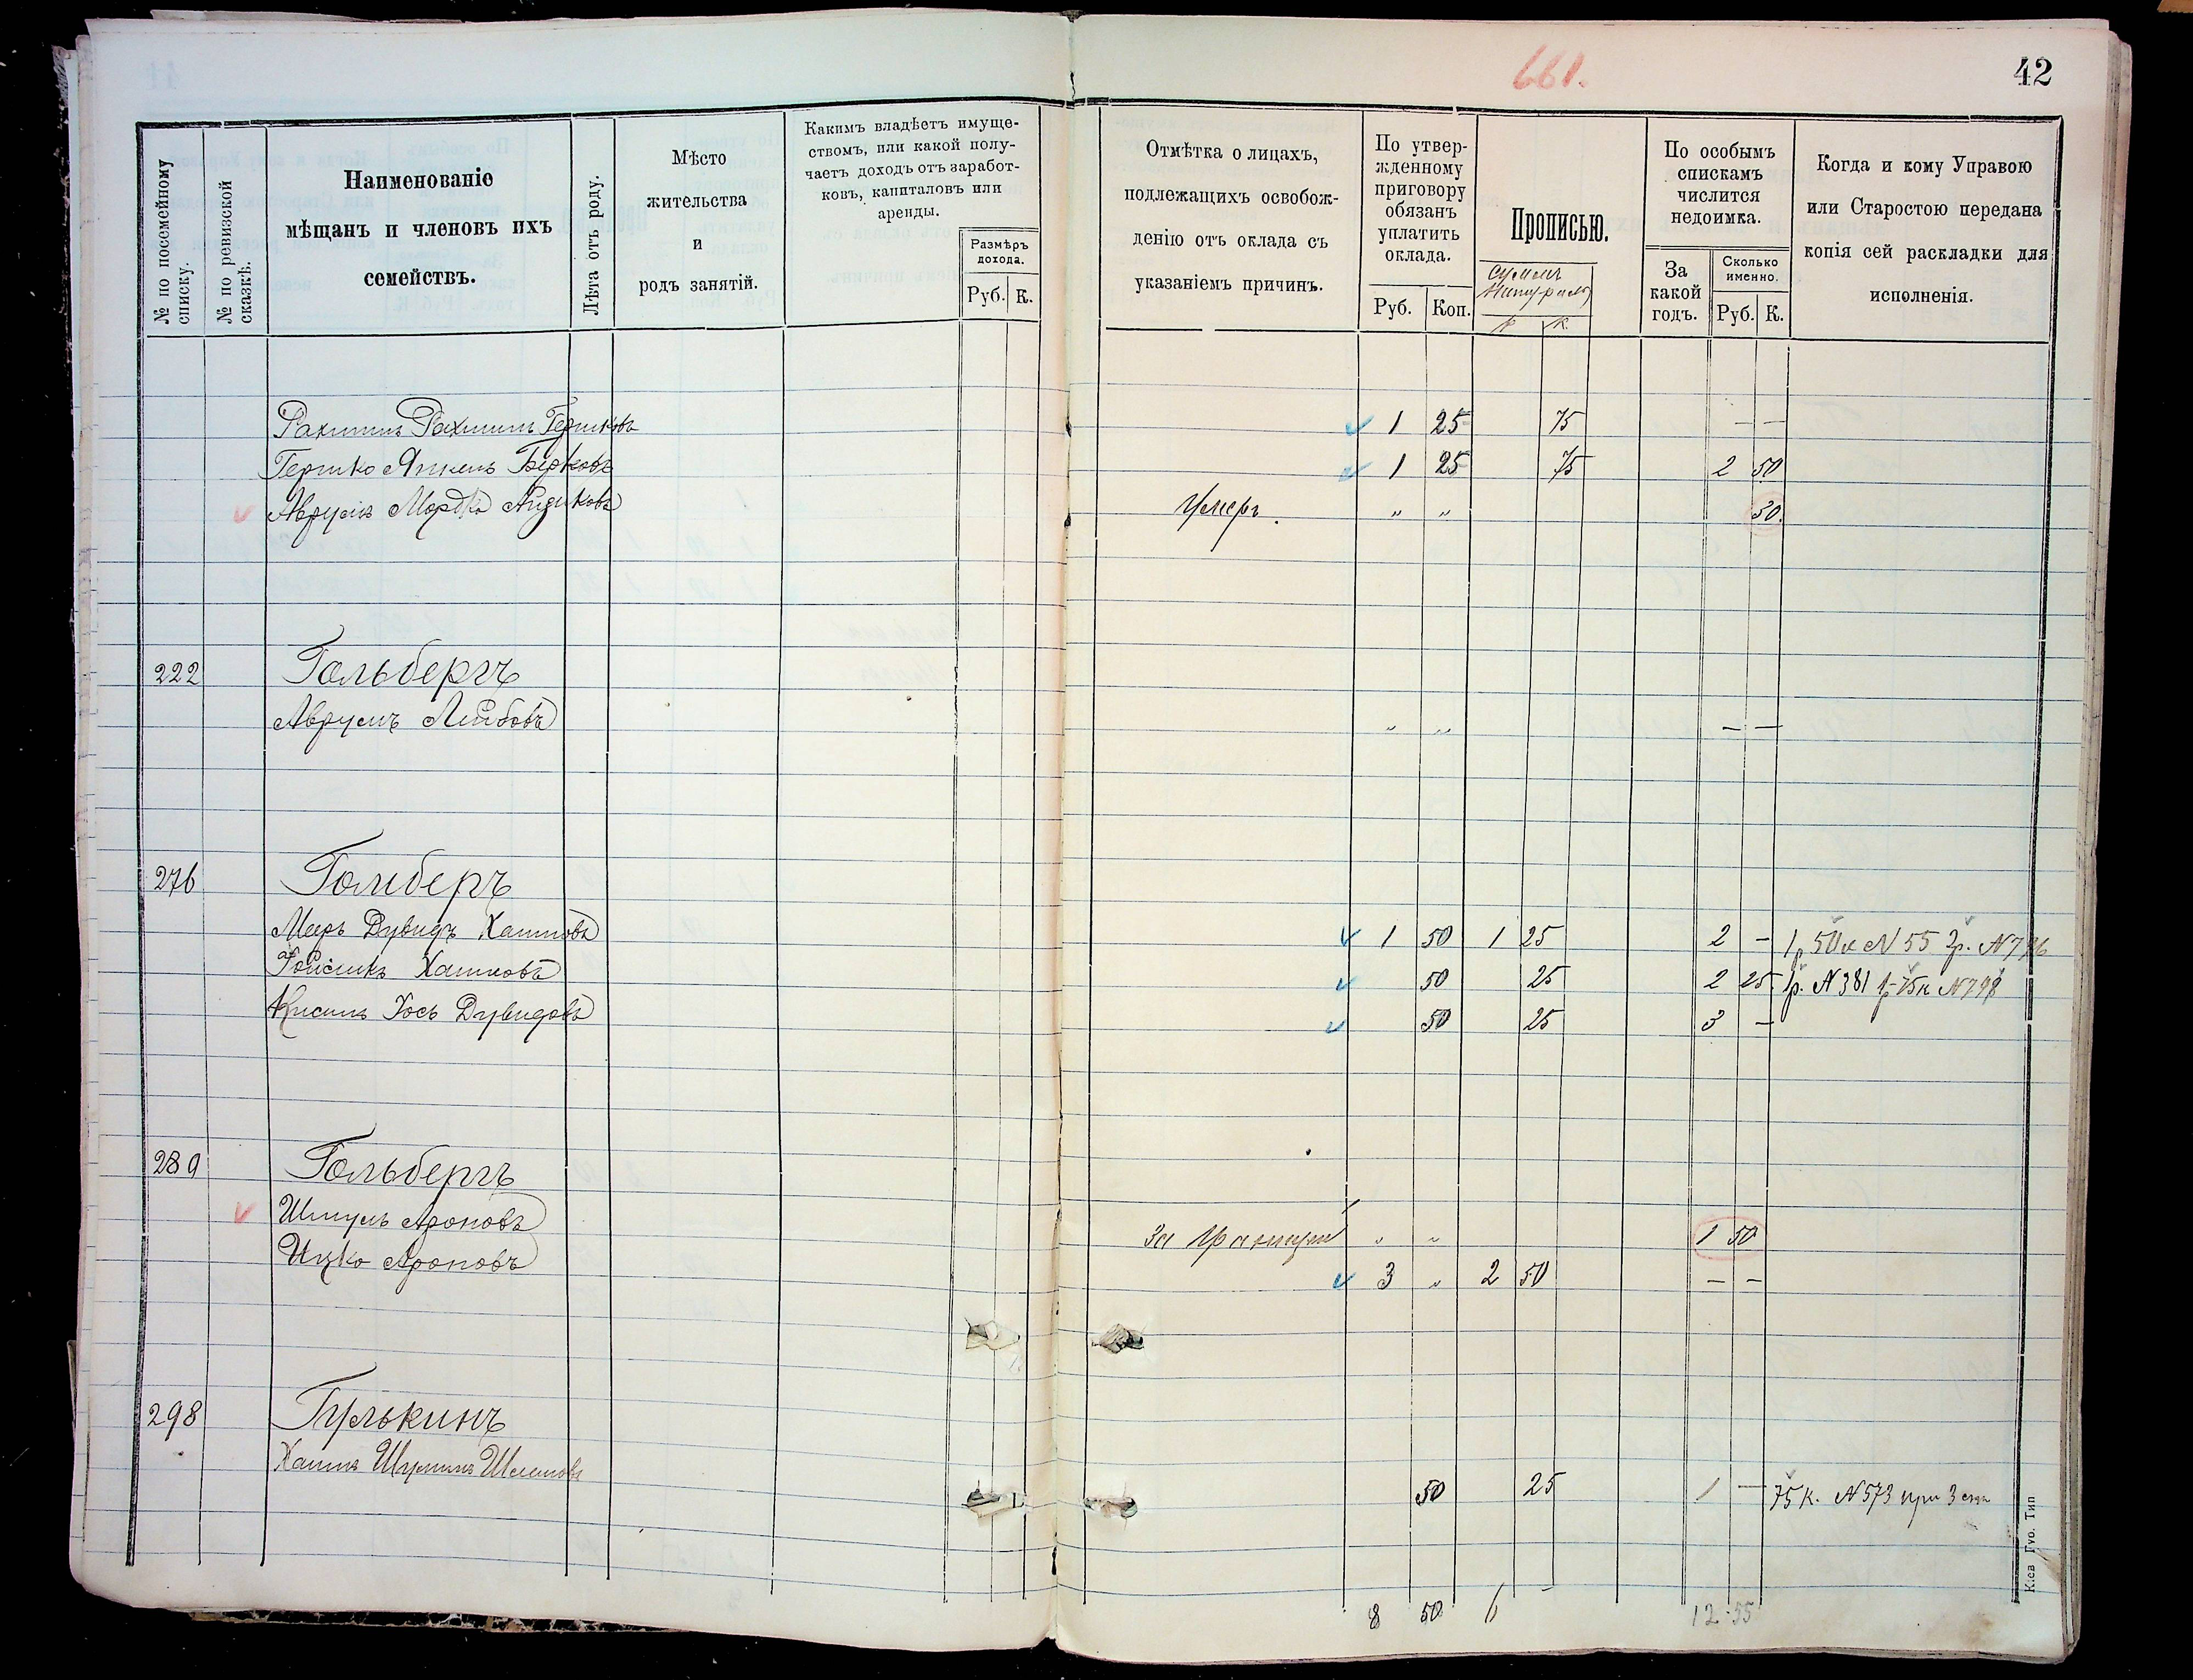 661.
42
№ по посемейному списку.
№ по ревизской сказкѣ.
Наименованіе
мѣщанъ и членовъ ихъ
семействъ.
Лѣта отъ роду.
Мѣсто
жительства
и
родъ занятій.
Какимъ владѣетъ имуще-
ствомъ, или какой полу-
чаетъ доходъ отъ заработ-
ковъ, капиталовъ или
аренды.
Размѣръ
дохода.
Руб. К.
Отмѣтка о лицахъ,
подлежащихъ освобож-
денію отъ оклада съ
указаніемъ причинъ.
По утвер-
жденному
приговору
обязанъ
уплатить
оклада.
Руб. Коп.
Прописью.
р к
По особымъ
спискамъ
числится
недоимка.
За
какой
годъ.
Сколько
именно.
Руб. К.
Когда и кому Управою
или Старостою передана
копія сей раскладки для
исполненія.
Рахмилъ Гершковъ 1 25 75 — —
Гершко Берковъ 1 25 75 2 50
Мордко Айзиковъ Умеръ. „ „ 50.
222 Гольбергъ
Аврумъ Лейбовъ „ „ — —
276 Гольберъ
Меръ Дувидъ Хаимовъ 1 50 1 25 2 — 1р 50к N 55 2р. N 776
Хаимовъ 50 25 2 25 1р. N 381 1р 75к N 798
Іось Дувидовъ 50 25 3 —
289 Гольбергъ
Шмуль Ароновъ За границей „ „ 1 50
Ицко Ароновъ 3 „ 2 50 — —
298 Гулькинъ
50 25 1 — 75 к. N 573 при 3 
8 50 6 — 12 55
Кіев Губ. Тип